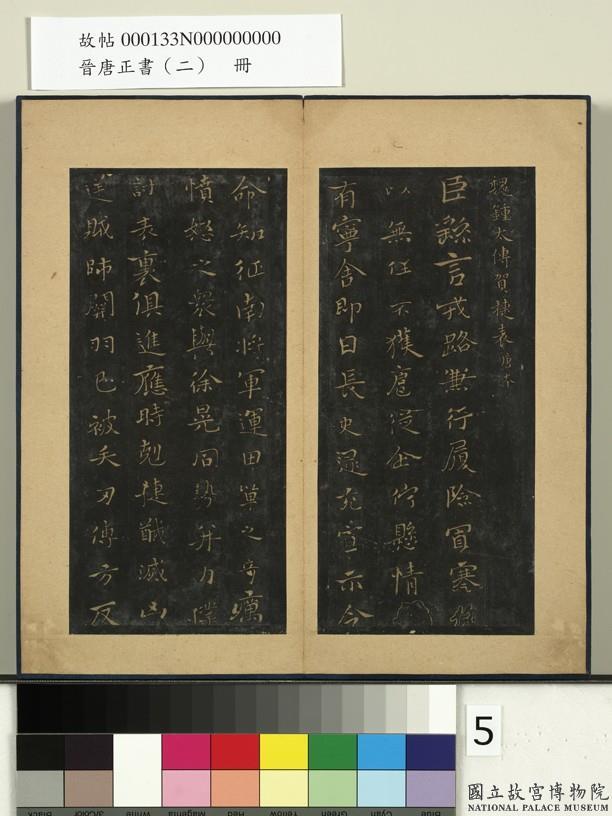 故帖 000133N000000000
晉唐正書（二） 冊
魏鍾太傅賀捷表 唐本
臣繇言戎路兼行履險冒寒臣
以無任不獲扈從企佇懸情
有寧舍即日長史逯充宣示令
命知征南將軍運田單之奇厲
憤怒之衆與徐晃同勢并力
討表裏俱進應時剋捷馘滅凶
逆賊帥關羽已被矢刃傅方反
5
國立故宮博物院
NATIONAL PALACE MUSEUM
Black
3/Color
White
Magenta
Red
Yellow
Green
Cyan
Blue